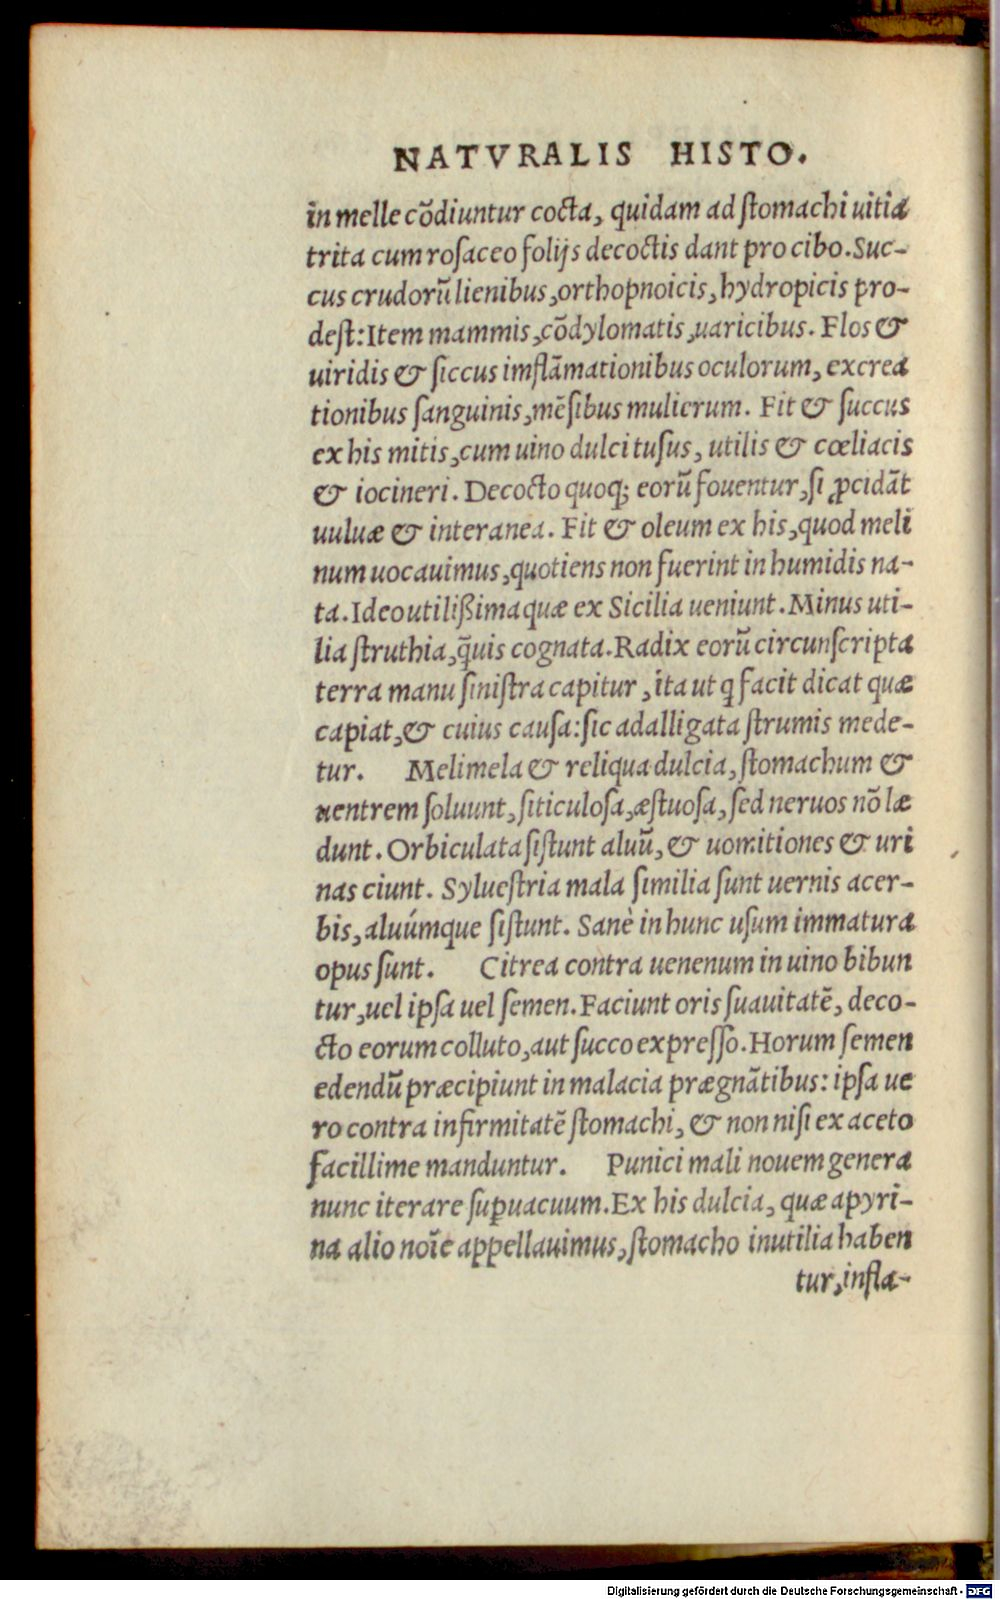 NATVRALIS HISTO.
in melle cõdiuntur cocta, quidam ad stomachi uitia
trita cum rosaceo folijs decoctis dant pro cibo. Suc-
cus crudorũ lienibus, orthopnoicis, hydropicis pro-
dest: Item mammis, cõdylomatis, uaricibus. Flos &
uiridis & siccus imflãmationibus oculorum, excrea
tionibus sanguinis, mẽsibus mulierum. Fit & succus
ex his mitis, cum uino dulci tusus, utilis & cœliacis
& iocineri. Decocto quoq; eorũ fouentur, si ꝓcidãt
uuluæ & interanea. Fit & oleum ex his, quod meli
num uocauimus, quotiens non fuerint in humidis na-
ta. Ideo utilißima quæ ex Sicilia ueniunt. Minus uti-
lia struthia, q̃uis cognata. Radix eorũ circunscripta
terra manu sinistra capitur, ita ut q facit dicat quæ
capiat, & cuius causa: sic adalligata strumis mede-
tur. Melimela & reliqua dulcia, stomachum &
uentrem soluunt, siticulosa, æstuosa, sed neruos nõ læ
dunt. Orbiculata sistunt aluũ, & uomitiones & uri
nas ciunt. Syluestria mala similia sunt uernis acer-
bis, aluúmque sistunt. Sanè in hunc usum immatura
opus sunt. Citrea contra uenenum in uino bibun
tur, uel ipsa uel semen. Faciunt oris suauitatẽ, deco-
cto eorum colluto, aut succo expresso. Horum semen
edendũ præcipiunt in malacia prægnãtibus: ipsa ue
ro contra infirmitatẽ stomachi, & non nisi ex aceto
facillime manduntur. Punici mali nouem genera
nunc iterare suꝑuacuum. Ex his dulcia, quæ apyri-
na alio noĩe appellauimus, stomacho inutilia haben
tur, infla-
Digitalisierung gefördert durch die Deutsche Forschungsgemeinschaft - DFG